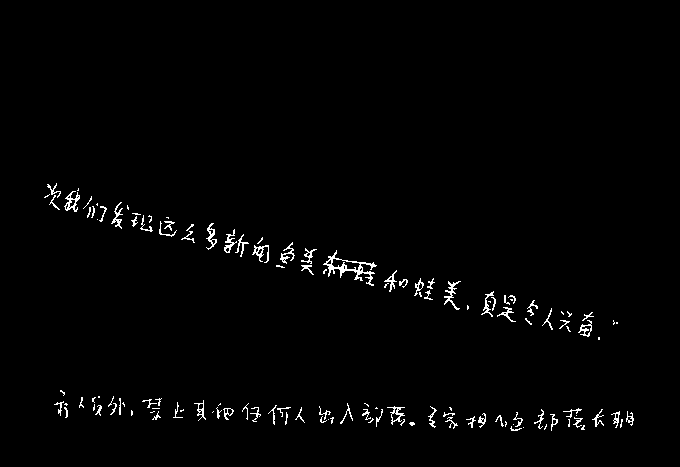 次我们发现这么多新的鱼类和蛙和蛙类，真是令人兴奋。”
人以外，禁止其他任何人出入部落。专家相信这部落长期